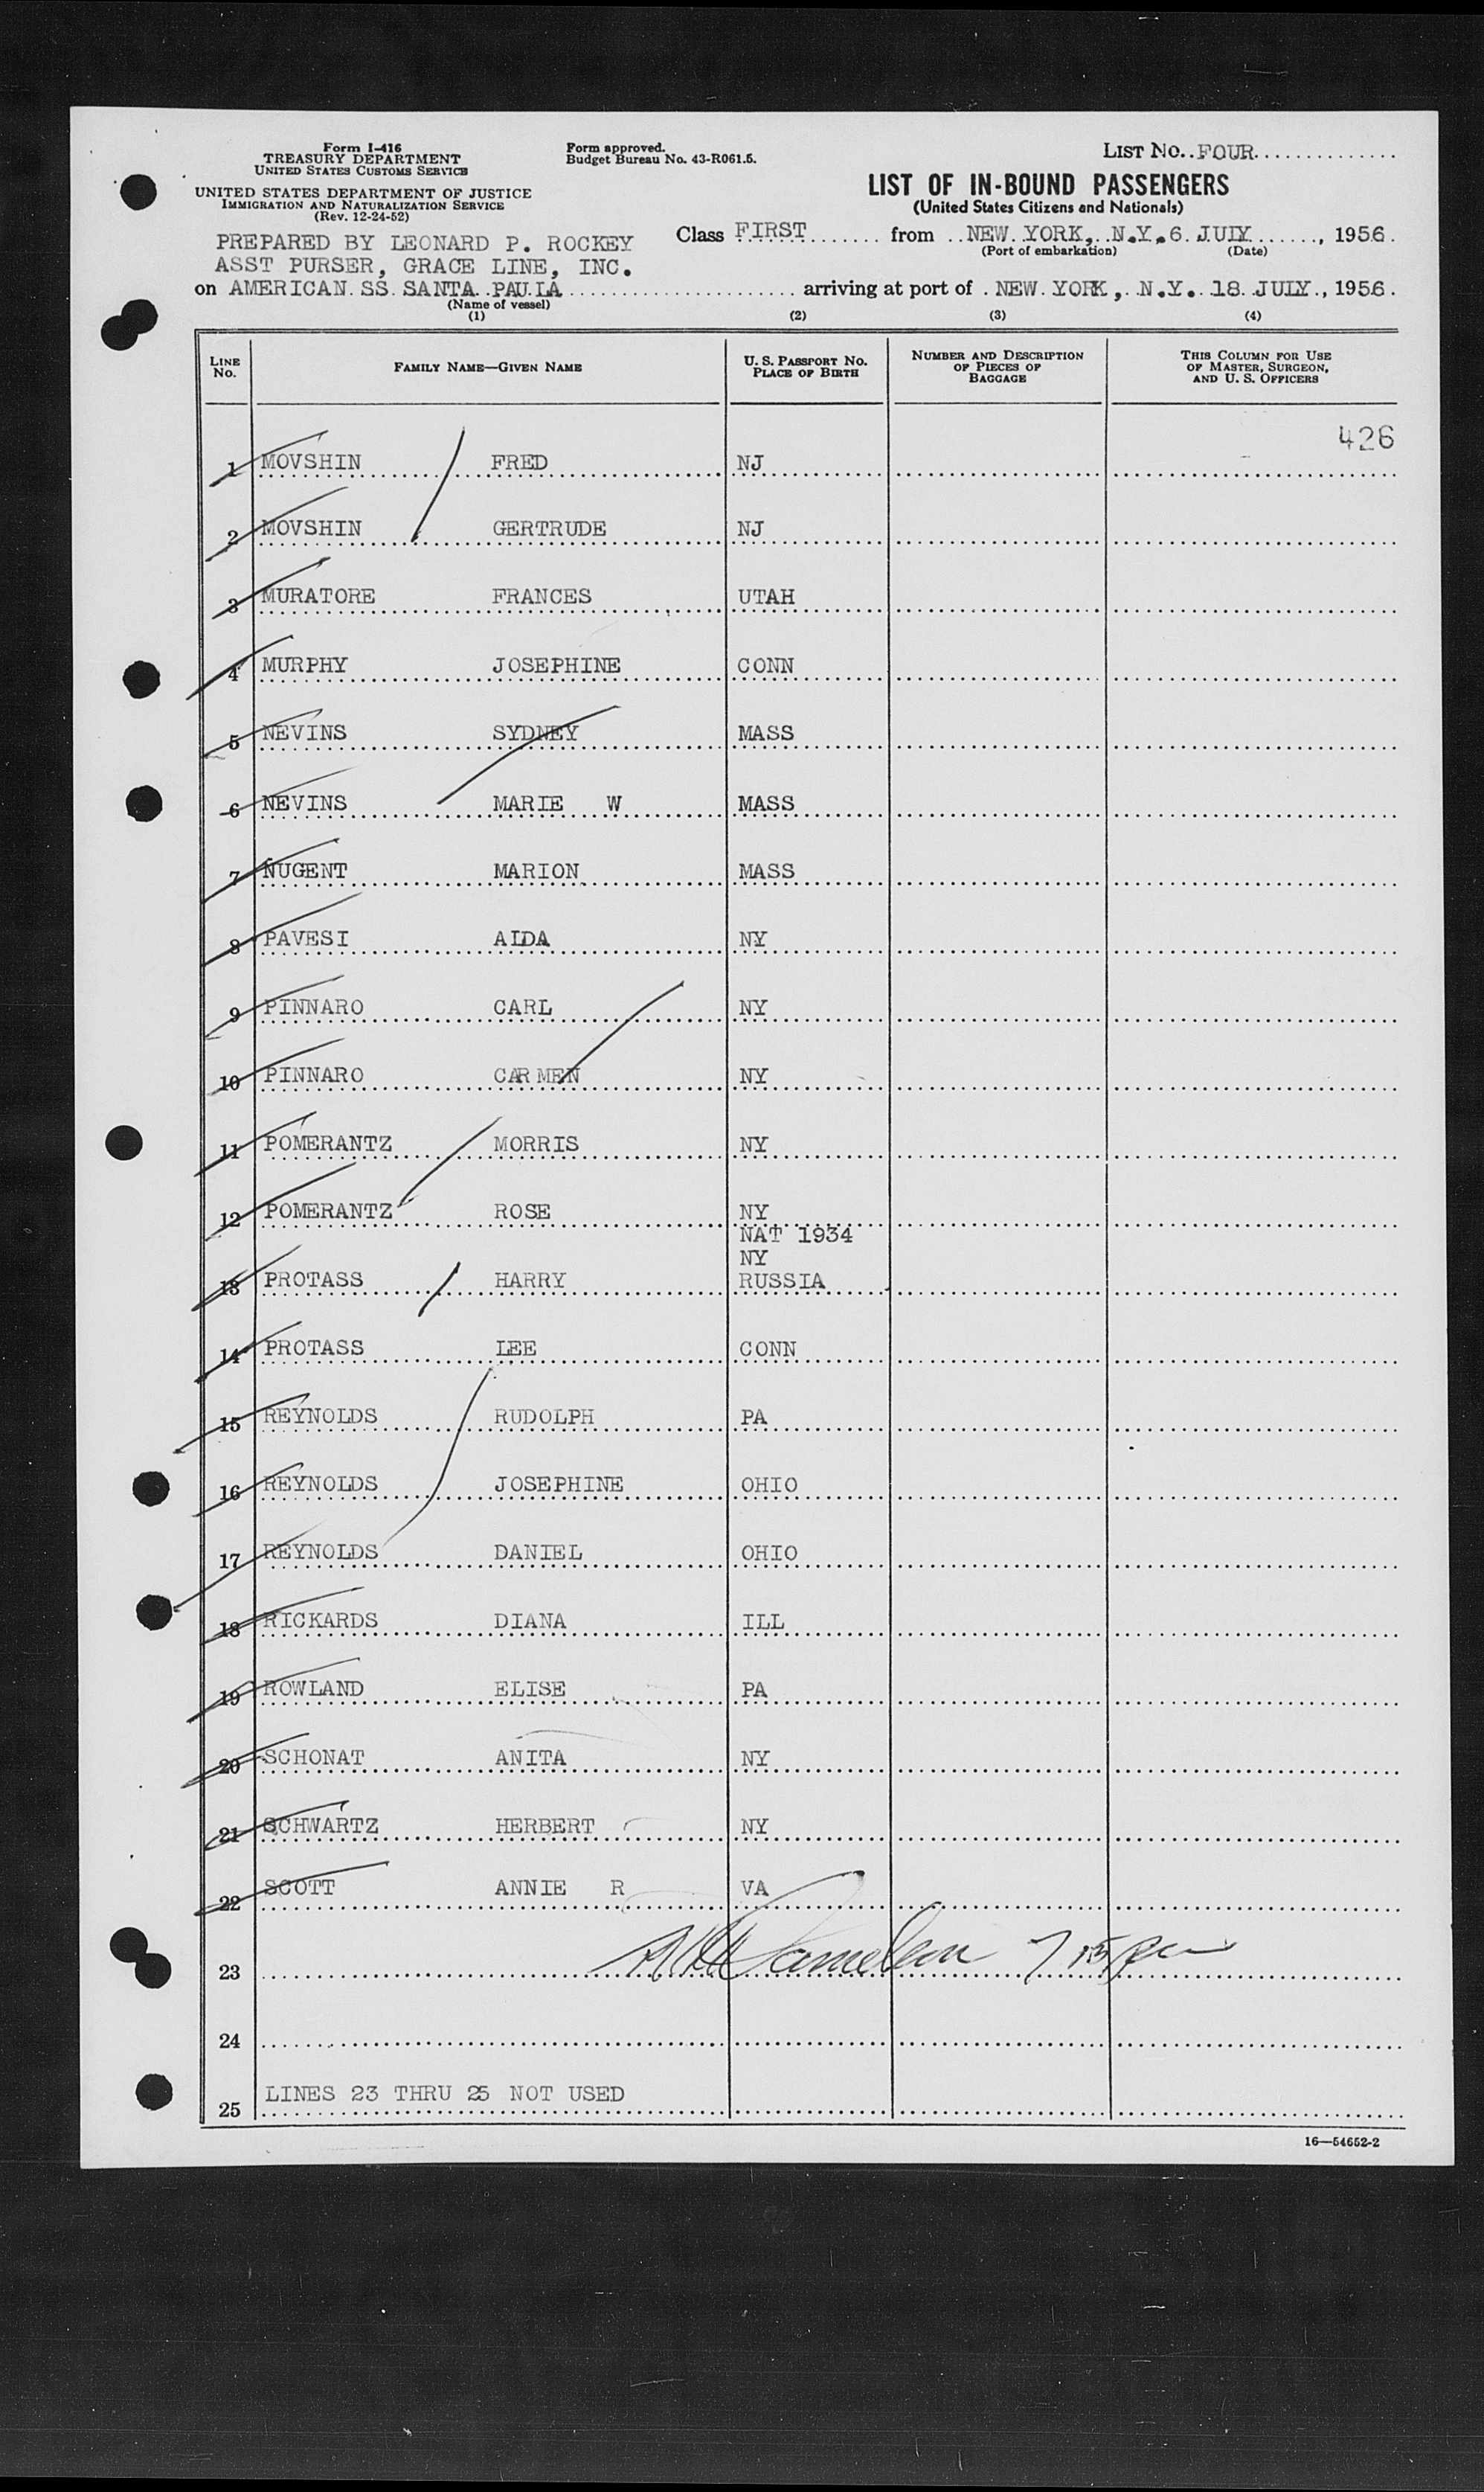 Form I-416
TREASURY DEPARTMENT
UNITED STATES CUSTOMS SERVICE
UNITED STATES DEPARTMENT OF JUSTICE
IMMIGRATION AND NATURALIZATION SERVICE
(Rev. 12-24-52)
Form approved.
Budget Bureau No. 43-R061.5.
LIST NO. FOUR
LIST OF IN-BOUND PASSENGERS
(United States Citizens and Nationals)
PREPARED BY LEONARD P. ROCKEY
ASST PURSER, GRACE LINE, INC.
Class FIRST from NEW YORK, N.Y. 6 JULY, 1956.
(Port of embarkation) (Date)
on AMERICAN SS SANTA PAULA arriving at port of NEW YORK, N.Y. 18 JULY, 1956.
(Name of vessel)
(1) (2) (3) (4)
LINE NO. FAMILY NAME—GIVEN NAME U. S. PASSPORT NO. PLACE OF BIRTH NUMBER AND DESCRIPTION OF PIECES OF BAGGAGE THIS COLUMN FOR USE OF MASTER, SURGEON, AND U. S. OFFICERS
426
1 MOVSHIN FRED NJ
2 MOVSHIN GERTRUDE NJ
3 MURATORE FRANCES UTAH
4 MURPHY JOSEPHINE CONN
5 NEVINS SYDNEY MASS
6 NEVINS MARIE W MASS
7 NUGENT MARION MASS
8 PAVESI AIDA NY
9 PINNARO CARL NY
10 PINNARO CARMEN NY
11 POMERANTZ MORRIS NY
12 POMERANTZ ROSE NY
NAT 1934
NY
13 PROTASS HARRY RUSSIA
14 PROTASS LEE CONN
15 REYNOLDS RUDOLPH PA
16 REYNOLDS JOSEPHINE OHIO
17 REYNOLDS DANIEL OHIO
18 RICKARDS DIANA ILL
19 ROWLAND ELISE PA
20 SCHONAT ANITA NY
21 SCHWARTZ HERBERT NY
22 SCOTT ANNIE R VA
23
24
25 LINES 23 THRU 25 NOT USED
16—54652-2